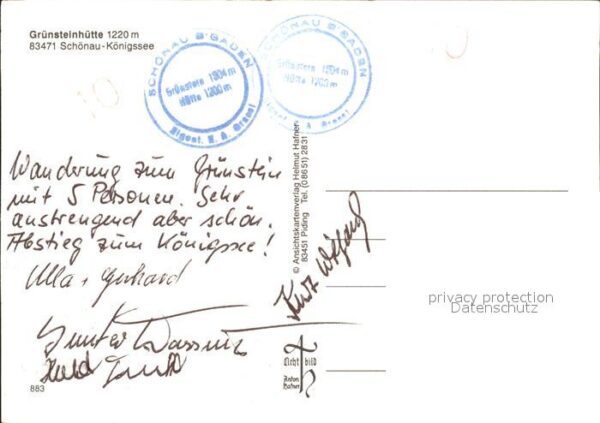 Grünsteinhütte 1220 m
83471 Schönau-Königssee
SCHÖNAU B'GADEN
Grünstein 1304 m
Hütte 1200 m
SCHÖNAU B'GADEN
Grünstein 1304 m
Hütte 1200 m
Wanderung zum Grünstein
mit 5 Personen. Sehr
anstrengend aber schön.
Abstieg zum Königssee!
Ulla + Gerhard
Kurz Wolfgang
Günter
© Ansichtskartenverlag Helmut Hafner
83451 Piding Tel. (08651) 2831
privacy protection
Datenschutz
Licht bild
Anton
Hafner
883